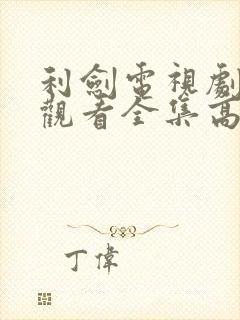 利劍電視劇
觀看全集高
丁偉